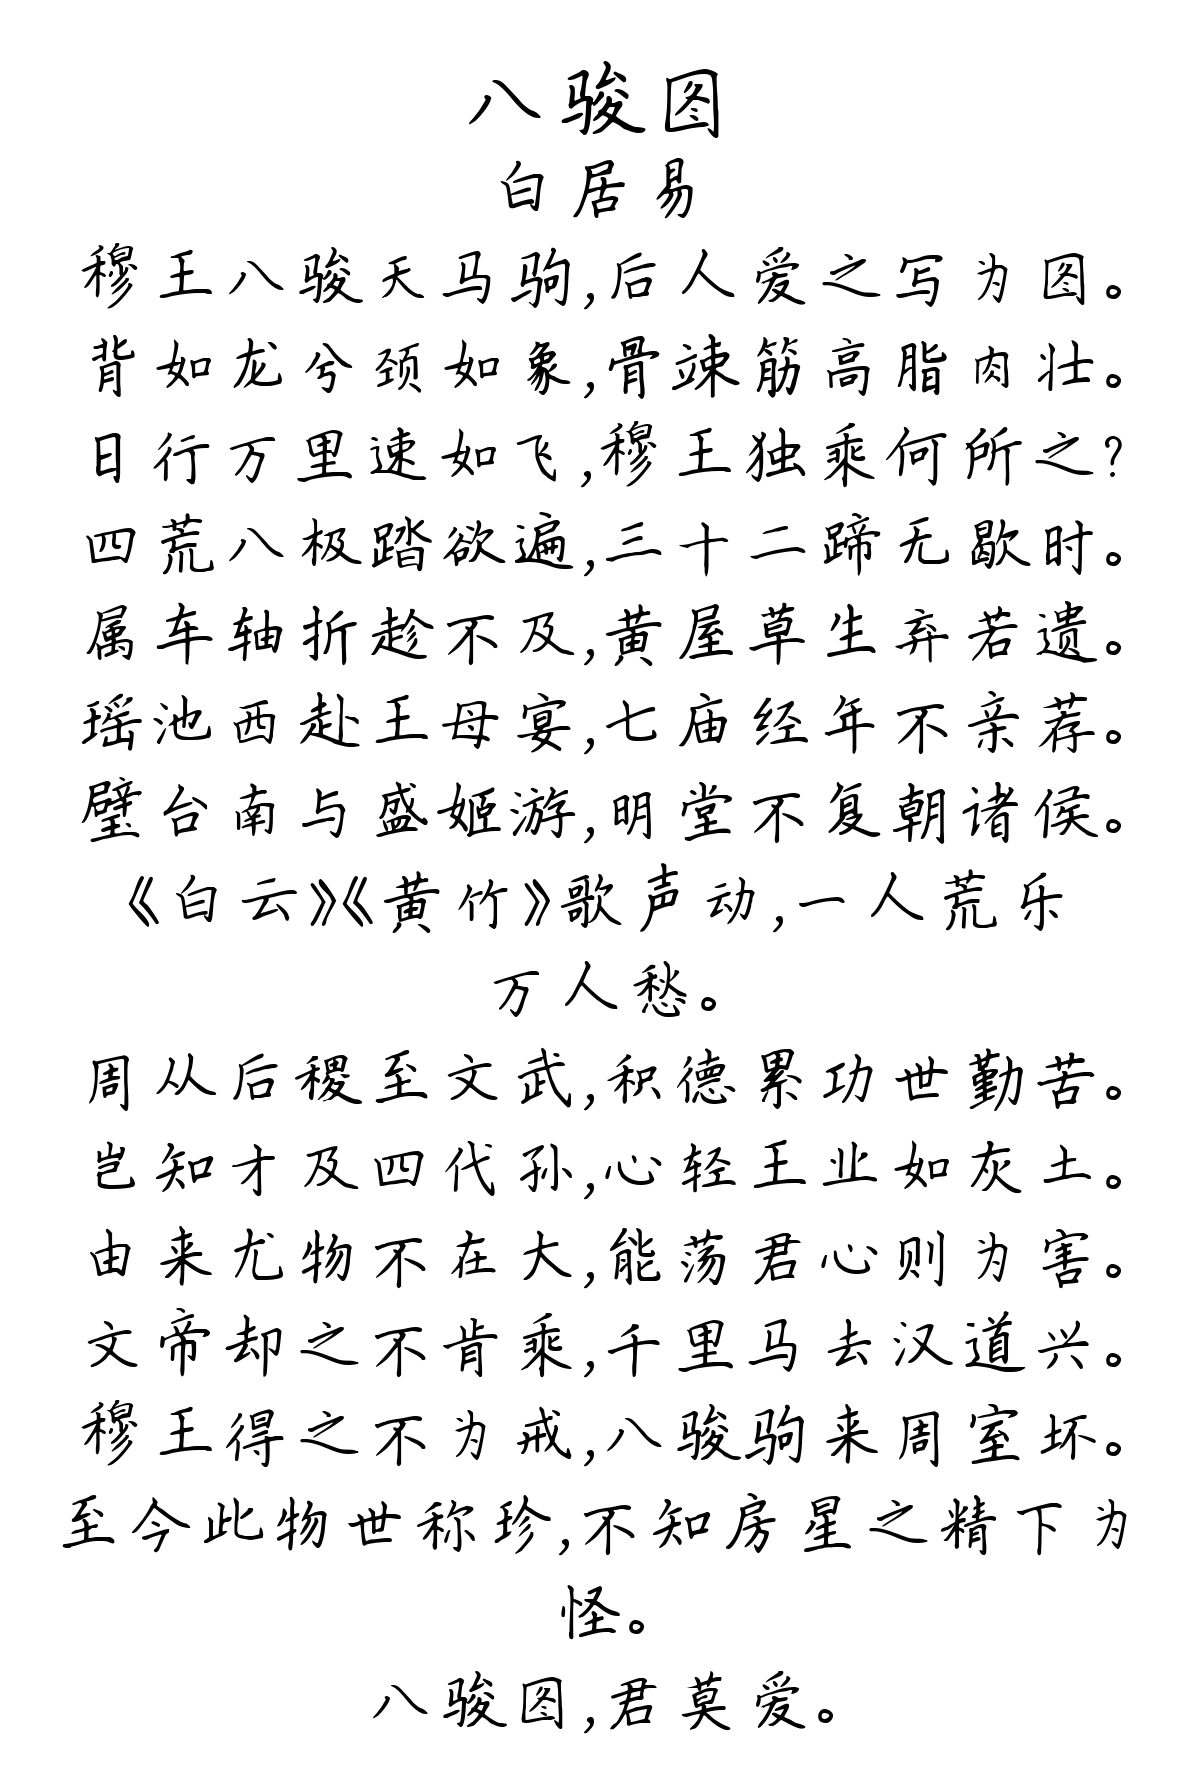 八骏图
白居易
穆王八骏天马驹,后人爱之写为图。
背如龙兮颈如象,骨竦筋高脂肉壮。
日行万里速如飞,穆王独乘何所之?
四荒八极踏欲遍,三十二蹄无歇时。
属车轴折趁不及,黄屋草生弃若遗。
瑶池西赴王母宴,七庙经年不亲荐。
璧台南与盛姬游,明堂不复朝诸侯。
《白云》《黄竹》歌声动,一人荒乐
万人愁。
周从后稷至文武,积德累功世勤苦。
岂知才及四代孙,心轻王业如灰土。
由来尤物不在大,能荡君心则为害。
文帝却之不肯乘,千里马去汉道兴。
穆王得之不为戒,八骏驹来周室坏。
至今此物世称珍,不知房星之精下为
怪。
八骏图,君莫爱。